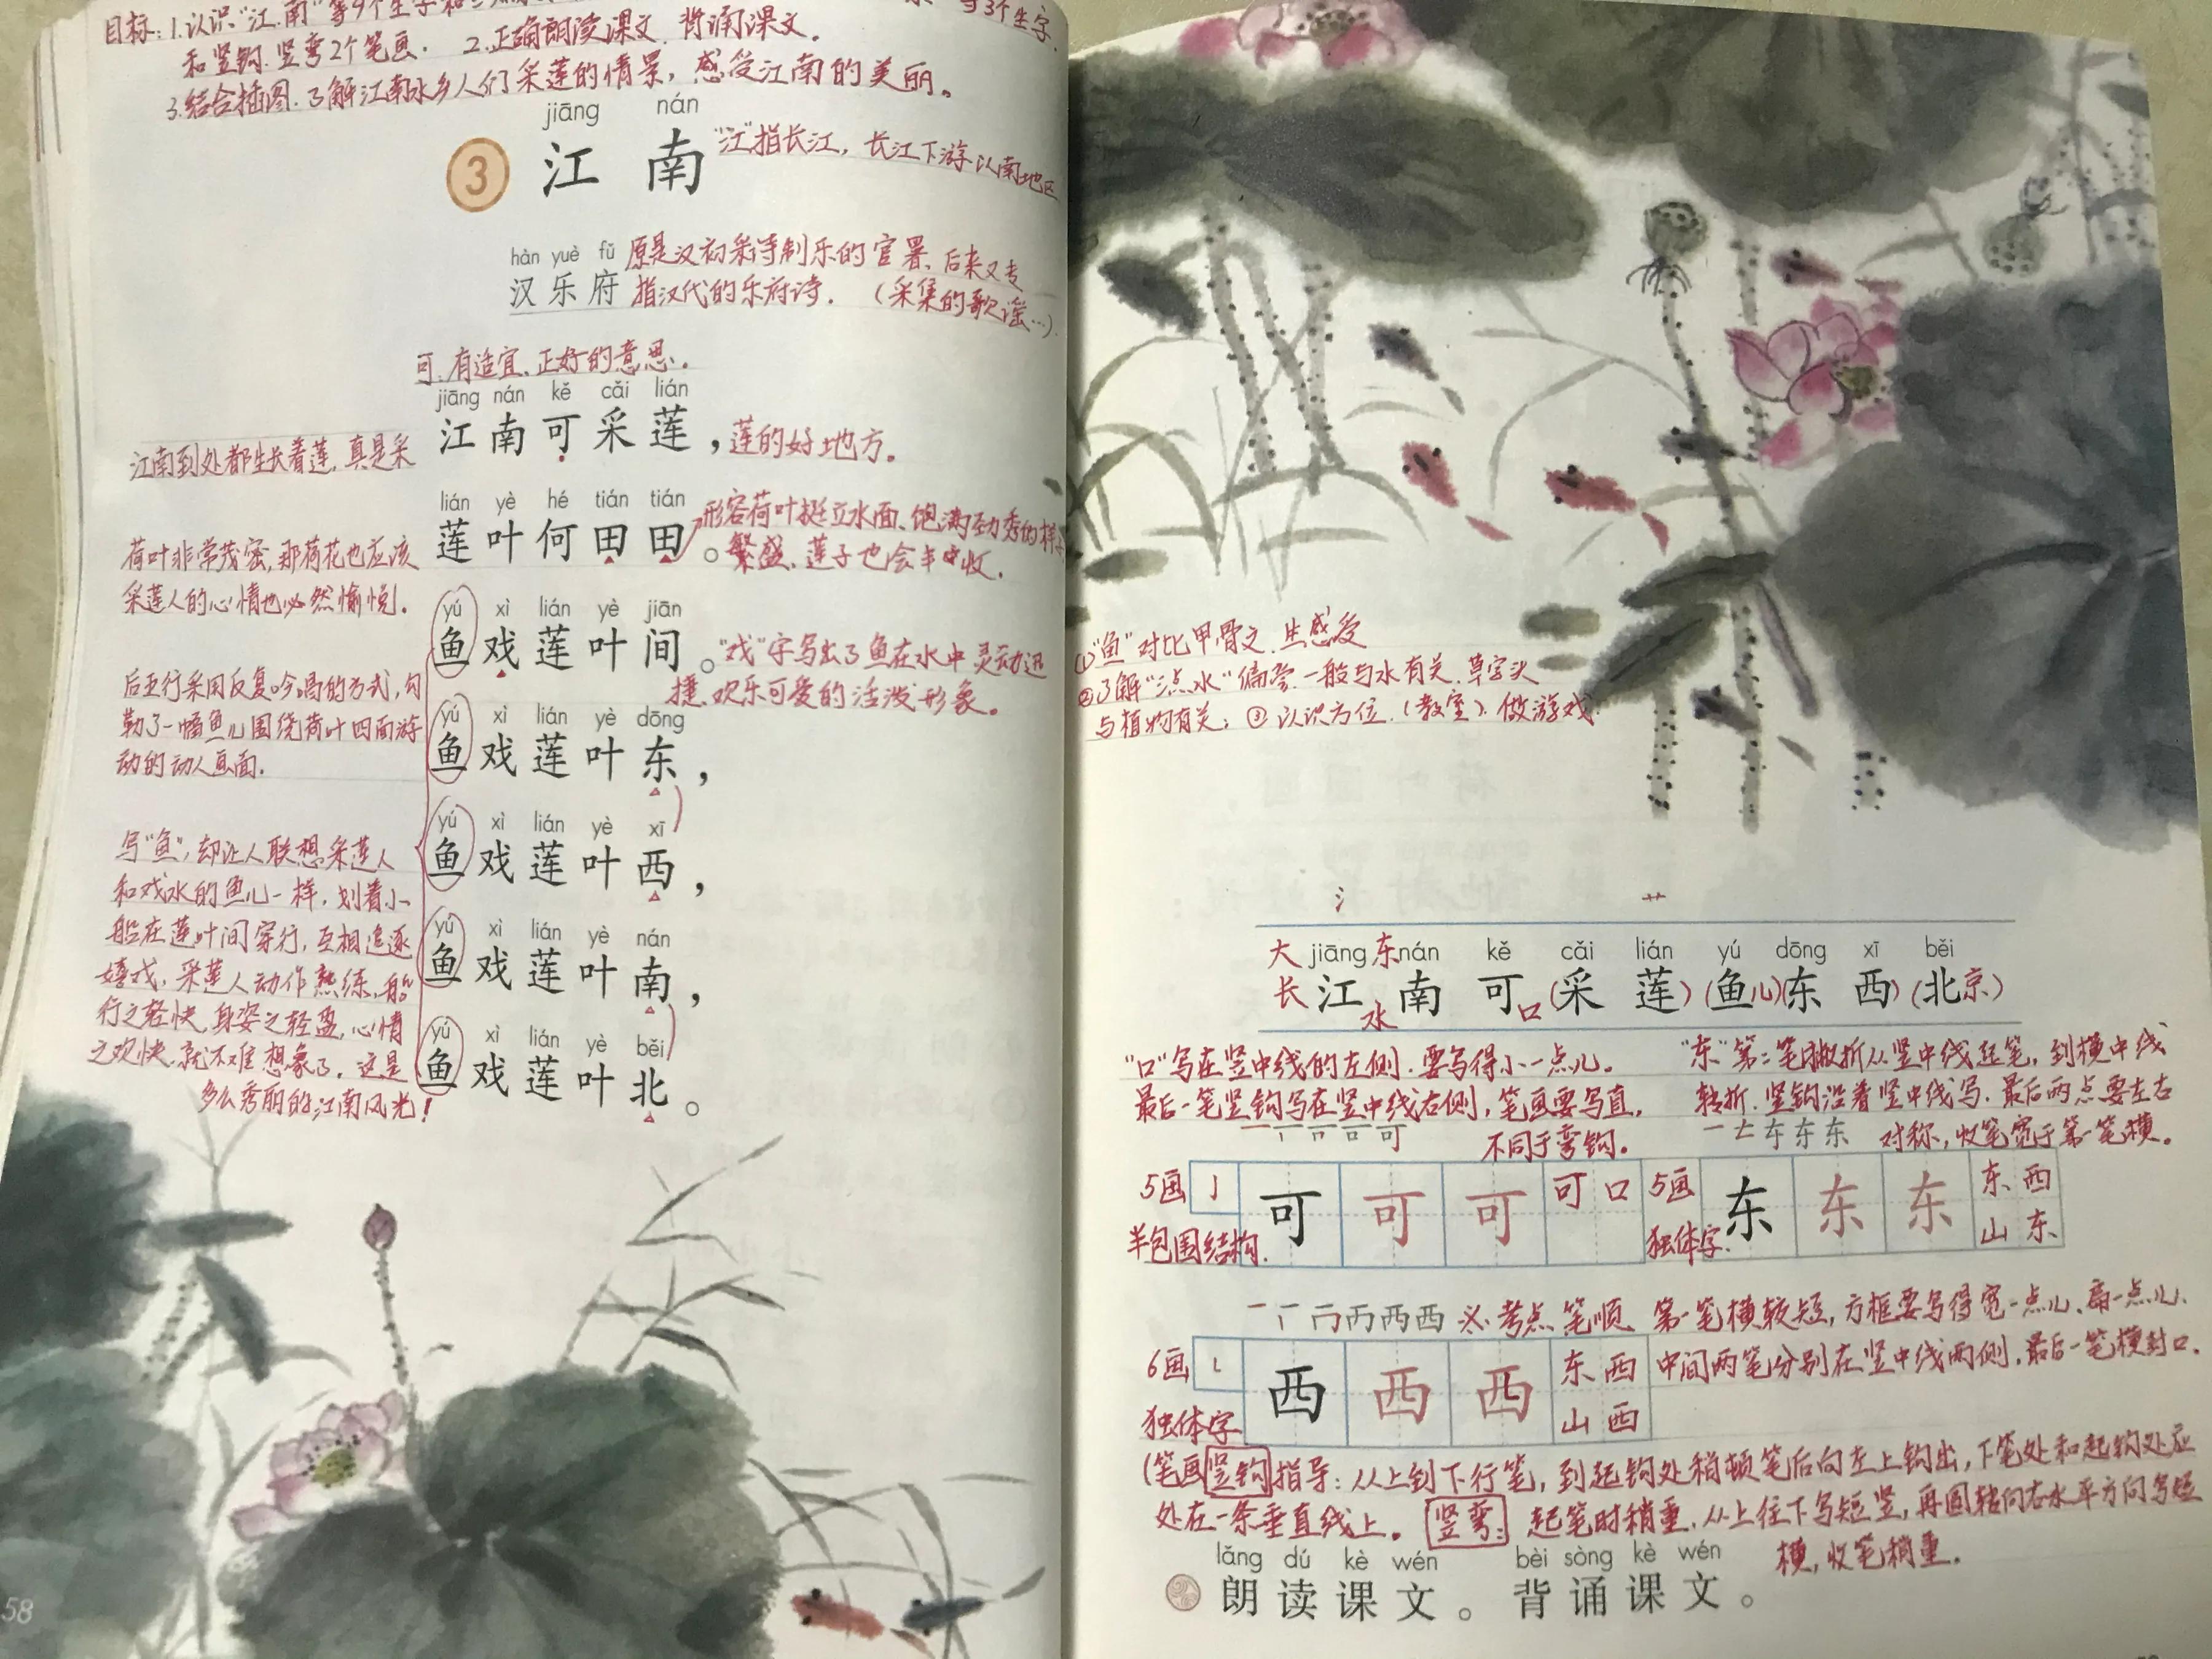 目标：1.认识"江、南"等9个生字和三点
等3个生字.
和竖钩.竖弯2个笔画. 2.正确朗读课文.背诵课文.
3.结合插图.了解江南水乡人们采莲的情景，感受江南的美丽。
jiāng nán
3 江南
"江"指长江，长江下游以南地区
hàn yuè fǔ
汉乐府
原是汉初采诗制乐的官署、后来又专
指汉代的乐府诗. （采集的歌谣…）.
可.有适宜、正好的意思.
jiāng nán kě cǎi lián
江南可采莲，
江南到处都生长着莲，真是采
莲的好地方。
lián yè hé tián tián
莲叶何田田。
形容荷叶挺立水面、饱满劲秀的样子
荷叶非常茂密，那荷花也应该
繁盛、莲子也会丰收.
采莲人的心情也必然愉悦.
yú xì lián yè jiān
鱼戏莲叶间。
"戏"字写出了鱼在水中灵动迅
捷、欢乐可爱的活泼形象。
后五行采用反复吟唱的方式，勾
勒了一幅鱼儿围绕荷叶四面游
动的动人画面.
yú xì lián yè dōng
鱼戏莲叶东，
yú xì lián yè xī
鱼戏莲叶西，
yú xì lián yè nán
鱼戏莲叶南，
yú xì lián yè běi
鱼戏莲叶北。
写"鱼"，却让人联想采莲人
和戏水的鱼儿一样，划着小
船在莲叶间穿行，互相追逐
嬉戏，采莲人动作熟练，船
行之轻快，身姿之轻盈，心情
之欢快.就不难想象了。这是
多么秀丽的江南风光！
58
①"鱼"对比甲骨文.生感受
②了解"三点水"偏旁.一般与水有关.草字头
与植物有关；③认识方位.（教室）.做游戏
氵 艹
大 jiāng 东 nán kě cǎi lián yú dōng xī běi
长江水南 可口（采莲）（鱼儿）（东西）（北京）
"口"写在竖中线的左侧.要写得小一点儿。
最后一笔竖钩写在竖中线右侧，笔画要写直，
不同于弯钩.
"东"第二笔撇折从竖中线起笔，到横中线
转折.竖钩沿着竖中线写.最后两点要左右
对称，收笔宽于第一笔横。
5画 亅 可 可 可 可口
半包围结构.
5画 东 东 东 东西
独体字. 山东
西 ※考点 笔顺 第一笔横较短，方框要写得宽一点儿、扁一点儿、
中间两笔分别在竖中线两侧，最后一笔横封口.
6画 西 西 西 东西
独体字 山西
（笔画竖钩指导：从上到下行笔，到起钩处稍顿笔后向左上钩出，下笔处和起钩处应
处在一条垂直线上。 竖弯： 起笔时稍重，从上往下写短竖，再圆转向右水平方向写短
横，收笔稍重.
lǎng dú kè wén bèi sòng kè wén
朗读课文。背诵课文。